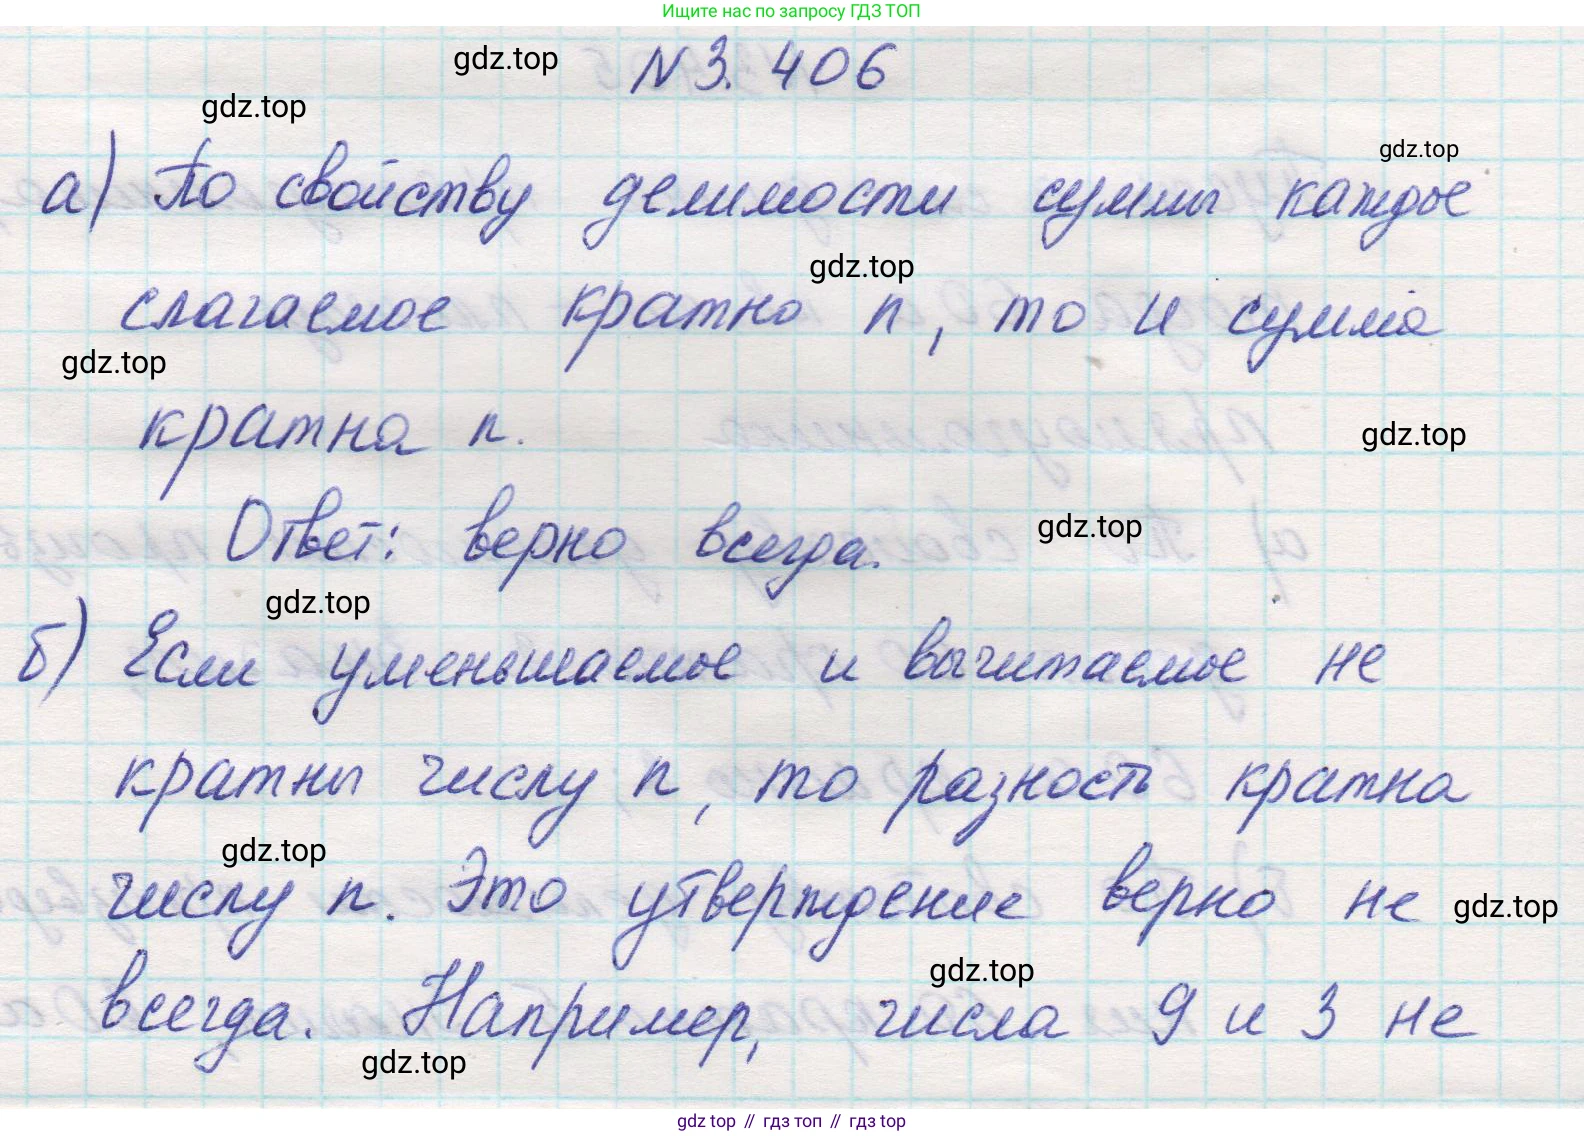 Ищите нас по запросу ГДЗ ТОП
N 3. 406
gdz.top
gdz.top
gdz.top
а) По свойству делимости суммы каждое
gdz.top
слагаемое кратно n, то и сумма
gdz.top
кратна n.
gdz.top
Ответ: верно всегда.
gdz.top
gdz.top
б) Если уменьшаемое и вычитаемое не
кратны числу n, то разность кратна
gdz.top
числу n. Это утверждение верно не
gdz.top
gdz.top
всегда. Например, числа 9 и 3 не
gdz.top
gdz top // гдз топ // гдз top